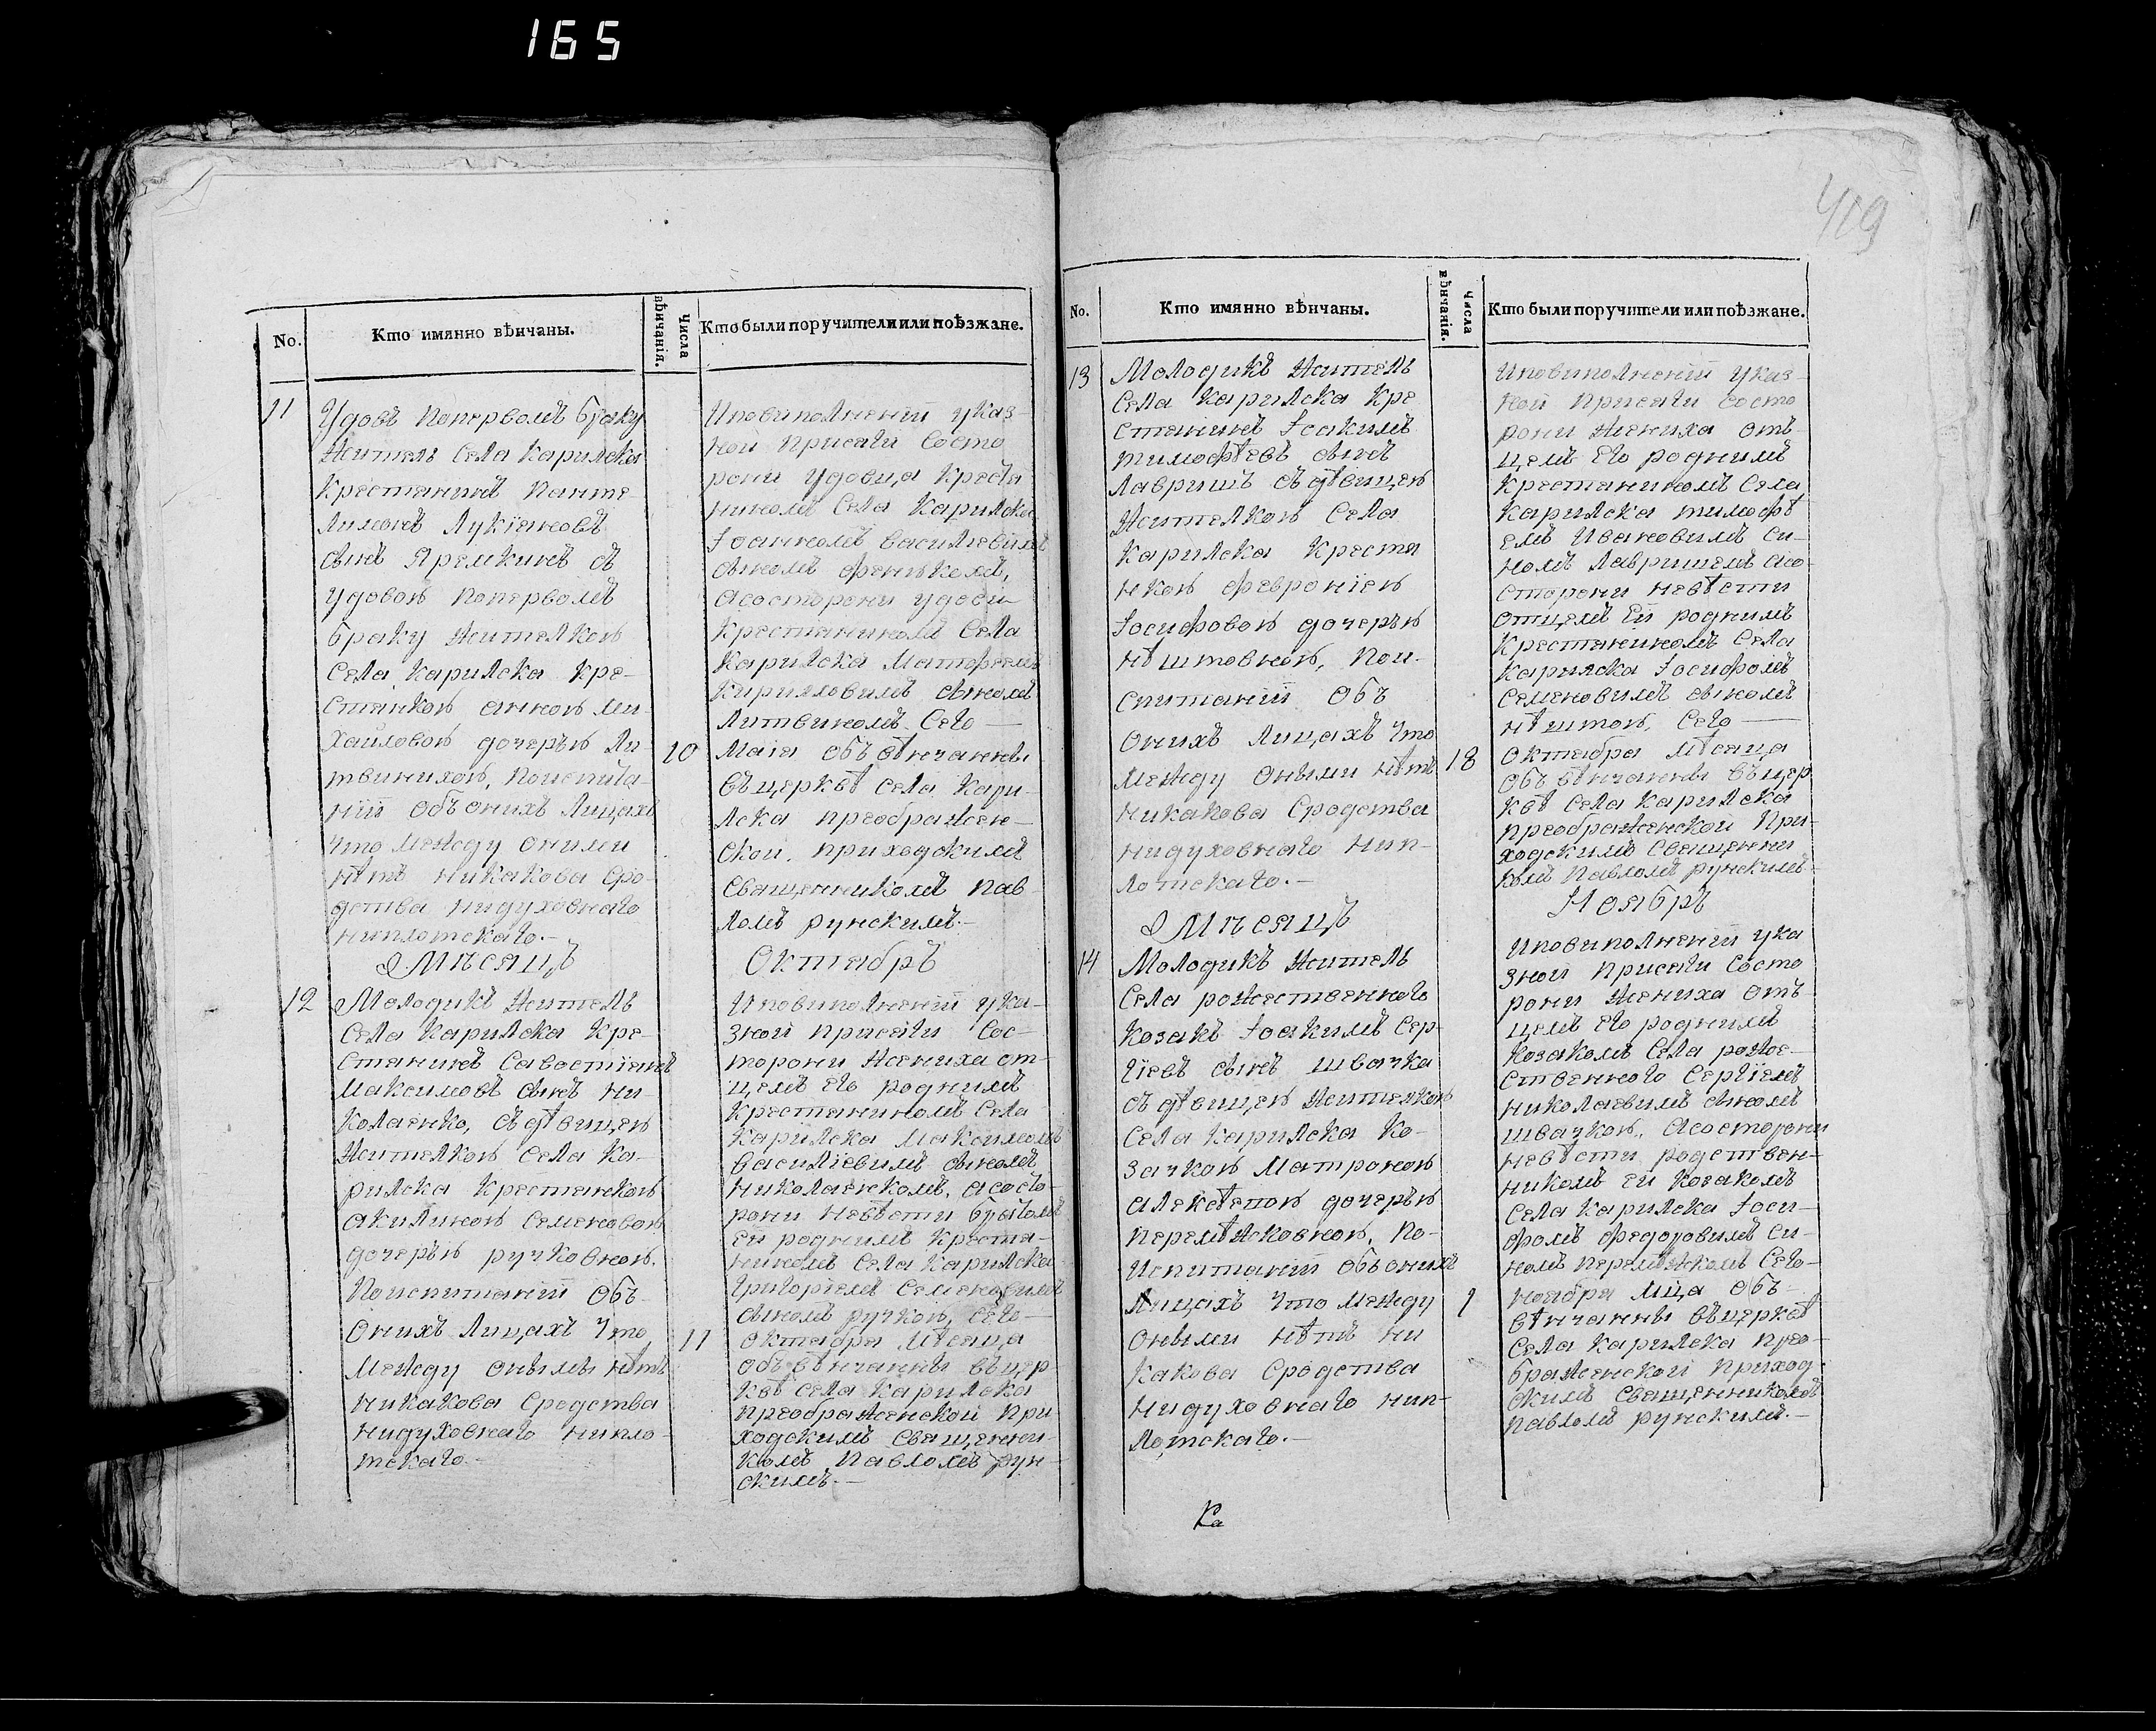 165
419
No.
Кто имянно вѣнчаны.
Числа вѣнчанія.
Кто были поручители или поѣзжане.
11
Удовъ поперволъ браку
житель села Карилска
крестянинъ Панте-
лимонъ Лукіановъ
сынъ Яремкинъ съ
удовою поперволъ
браку жителкою
села Карилска кре-
стянкою Анною Ми-
хайловою дочерью Ли-
твиникою, поиспита-
ніи объ онихъ лицахъ
что между оними
нѣтъ никакова сро-
дства нидуховнаго
ниплотскаго.-
10
Иповиполненіи указ-
ной присяги состо
рони удовца крестя
ниномъ села Карилска
Іоанномъ Василіевимъ
синомъ Фенькомъ,
асосторони удови-
крестяниномъ села
Карилска Матфеемъ
Кирилловимъ синомъ
Литвиномъ. Сего -
Маія объвѣнчанны
въцерквѣ села Кари-
лска преображен-
ской, приходскимъ
священникомъ Пав-
ломъ Рунскимъ.-
Мѣсяцъ
Октябръ
12
Молодикъ житель
села Карилска кре-
стянинъ Савостіянъ
Максимовъ сынъ Ни-
колаенко, съ дѣвицею
жителкою села Ка-
рилска крестянскою
Акилиною Семеновою
дочерью Ручковною.
Поиспитаніи объ
онихъ лицахъ что
между онымы нѣтъ
никакова сродства
нидуховнаго нипло-
тскаго.-
11
Иповиполненіи ука-
зной присяги сос-
торони жениха от-
цемъ его роднимъ
крестяниномъ села
Карилска Максимомъ
Василіевимъ синомъ
Николаенкомъ, асосто-
рони невѣсти братомъ
ей роднимъ крестя-
ниномъ села Карилска
Григоріемъ Семеновимъ
синомъ Ручкою, сего-
октября мѣсяца
объвѣнчанны въцер-
квѣ села Карилска
преображенской при-
ходскимъ священни-
комъ Павломъ Рун-
скимъ.-
No.
Кто имянно вѣнчаны.
Числа вѣнчанія.
Кто были поручители или поѣзжане.
13
Молодикъ житель
села Карилска кре
стянинъ Іоакимъ
Тимофѣевъ синъ
Лавришъ съ дѣвицею
жителкою села
Карилска крестя
нкою Февроніею
Іосифовою дочерью
Нѣштовною, пои-
спитаніи объ
онихъ лицахъ что
между оными нѣтъ
никакова сродства
нидуховнаго нип-
лотскаго.-
18
Иповиполненіи указ-
ной присяги состо
рони жениха отъ-
цемъ его роднимъ
крестяниномъ села
Карилска Тимофѣ
емъ Ивановимъ си-
номъ Лавришемъ асо-
сторони невѣсти
отцемъ ей роднимъ
крестяниномъ села
Карилска Іосифомъ
Семеновимъ синомъ
Нѣштою, сего -
октября мѣсяца
объвѣнчанны въцер
квѣ села Карилска
преображенской при-
ходскимъ священни
комъ Павломъ Рунскимъ.
Мѣсяцъ
Ноябръ
14
Молодикъ житель
села Рожественного
козакъ Іоакимъ Сер-
гіевъ синъ Швачка
съ дѣвицею жителкою
села Карилска ко-
зачкою Матроною
Алексѣевою дочерью
Перемѣжковною, по-
испитаніи объ онихъ
лицахъ что между
онымы нѣтъ ни
какова сродства
нидуховнаго нип-
лотскаго.-
1
Иповиполненіи ука
зной присяги состо
рони жениха отъ-
цемъ его роднимъ
козакомъ села Роже-
ственного Сергіемъ
Николаевимъ синомъ
Швачкою, асосторони
невѣсти родствен-
никомъ ей козакомъ
села Карилска Іоси-
фомъ Федоровимъ си-
номъ Перемѣжкомъ сего-
ноября мца объ-
вѣнчанны въцерквѣ
села Карилска прео-
браженской приход-
скимъ священникомъ
Павломъ Рунскимъ.-